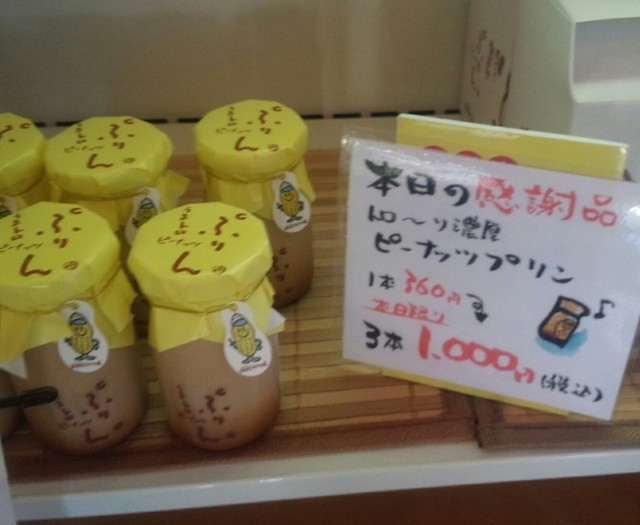 本日の感謝品
トロ〜り濃厚
ピーナッツプリン
1本360円
本日限り
3本1,000円(税込)
ぷりん
ピーナッツ
ぷりん
ピーナッツ
ぷりん
ピーナッツ
ぷりん
ピーナッツ
ぷりん
ぷりん